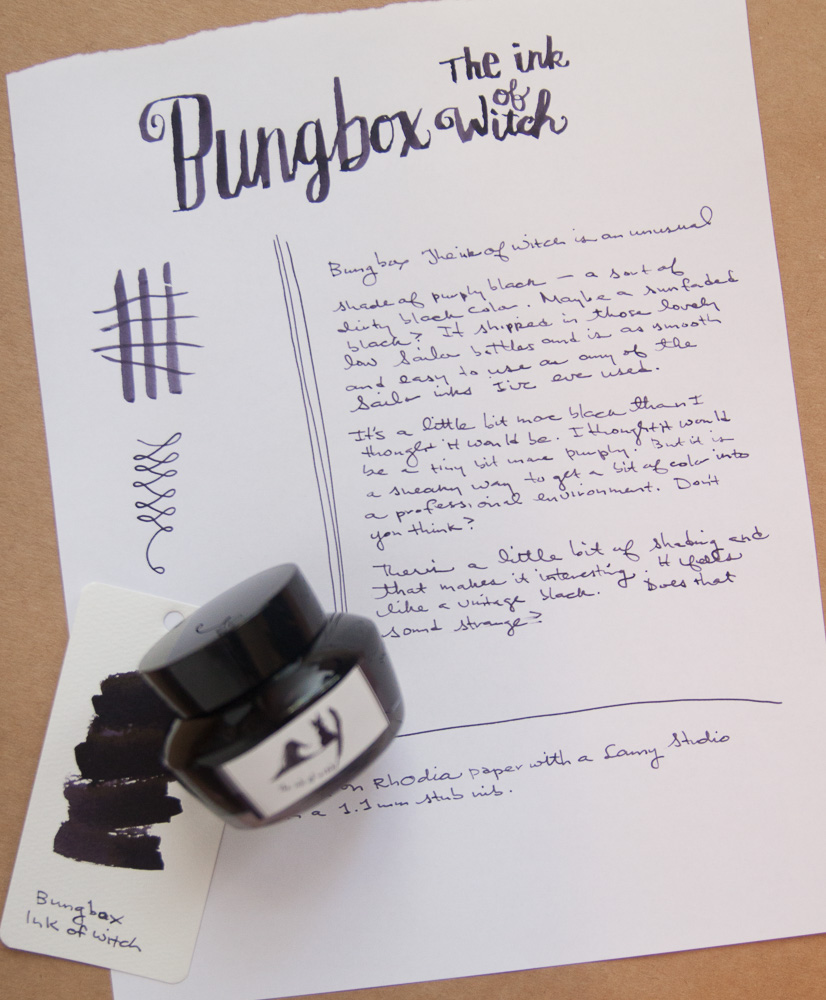 The ink
of
Bungbox Witch
Bungbox The ink of Witch is an unusual
shade of purply black — a sort of
dirty black color. Maybe a sunfaded
black? It shipped in those lovely
low Sailor bottles and is as smooth
and easy to use as any of the
Sailor inks I've ever used.
It's a little bit more black than I
thought it would be. I thought it would
be a tiny bit more purply. But it is
a sneaky way to get a bit of color into
a professional environment. Don't
you think?
There's a little bit of shading and
that makes it interesting. It feels
like a vintage black. Does that
sound strange?
on Rhodia paper with a Lamy Studio
a 1.1mm stub nib.
Bungbox
Ink of Witch